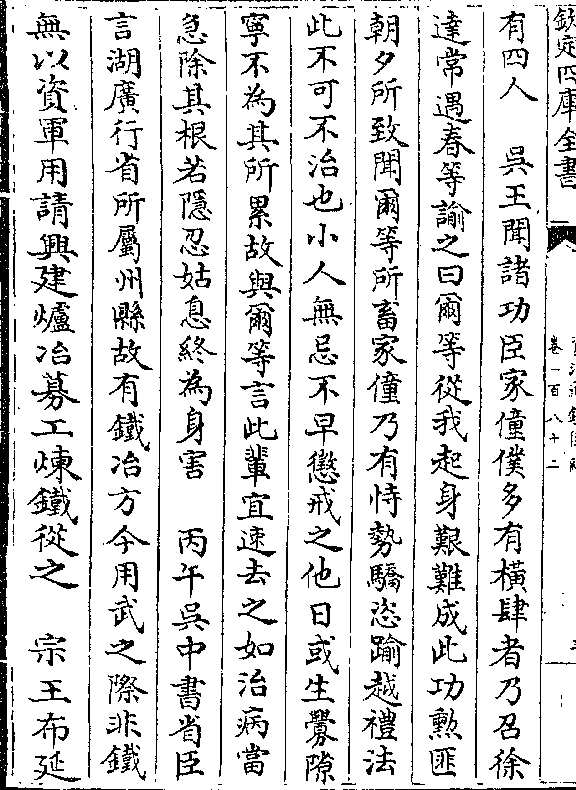 欽定四庫全書
卷一百八十二
有四人　吳王聞諸功臣家僮僕多有橫肆者乃召徐
達常遇春等諭之曰爾等從我起身艱難成此功勲匪
朝夕所致聞爾等所畜家僮乃有恃勢驕恣踰越禮法
此不可不治也小人無忌不早懲戒之他日或生釁隙
寧不為其所累故與爾等言此輩宜速去之如治病當
急除其根若隱忍姑息終為身害　丙午吳中書省臣
言湖廣行省所屬州縣故有鐵冶方今用武之際非鐵
無以資軍用請興建爐冶募工煉鐵從之　宗王布延